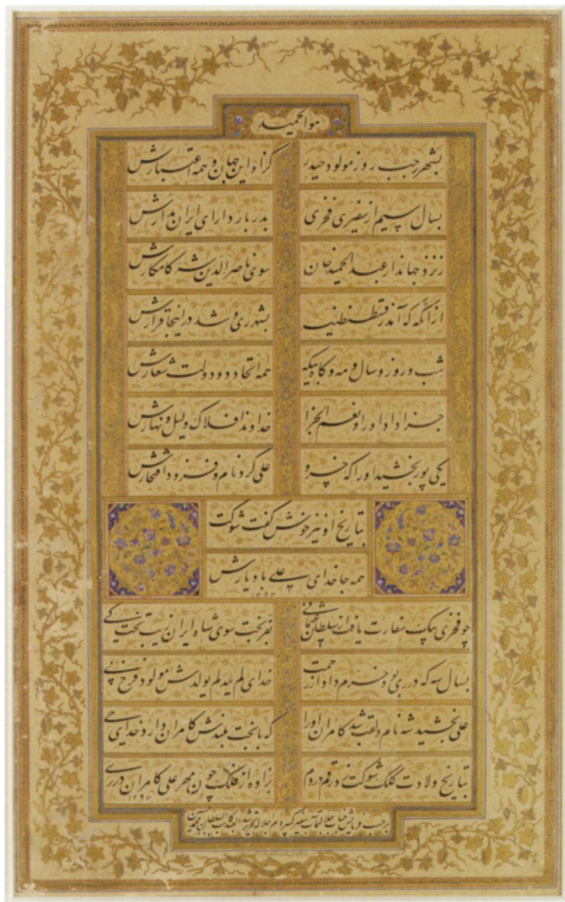 هوالحمید
بشهر رجب روز مولود حیدر کزاو این جهان و همه اعتبارش
بسال سیم از سفیری فخری بدربار دارای ایران مدارش
ز نزد جهاندار عبدالحمید خان سوی ناصرالدین شه کامکارش
از آنگه که آمد ز قسطنطنیه بشد ری و شد در اینجا قرارش
شب و روز و سال و مه و گاه و بیگه همه اتحاد دو دولت شعارش
جزا داد او را و نعم الجزا خداوند افلاک و لیل و نهارش
یکی پور بخشید او را که خسرو علی کرد نام و فزود افتخارش
بتاریخ او نیز خوش گفت شوکت
همه جا خدای علی باد یارش
چو فخری بیک سفارت یافت از سلطان عثمانی سوی شاه ایران
بسال سه که در ری بود خرم داد از رحمت خدای لم یلد لم یولدش مولود فرخ پی
علی بخشید شه نام و لقب شد کامران او را که با بخت بلندش کامران دارد خدای حی
بتاریخ ولادت کلک شوکت زد رقم در دم بزاده از فلک چون مهر علی کامران در ری